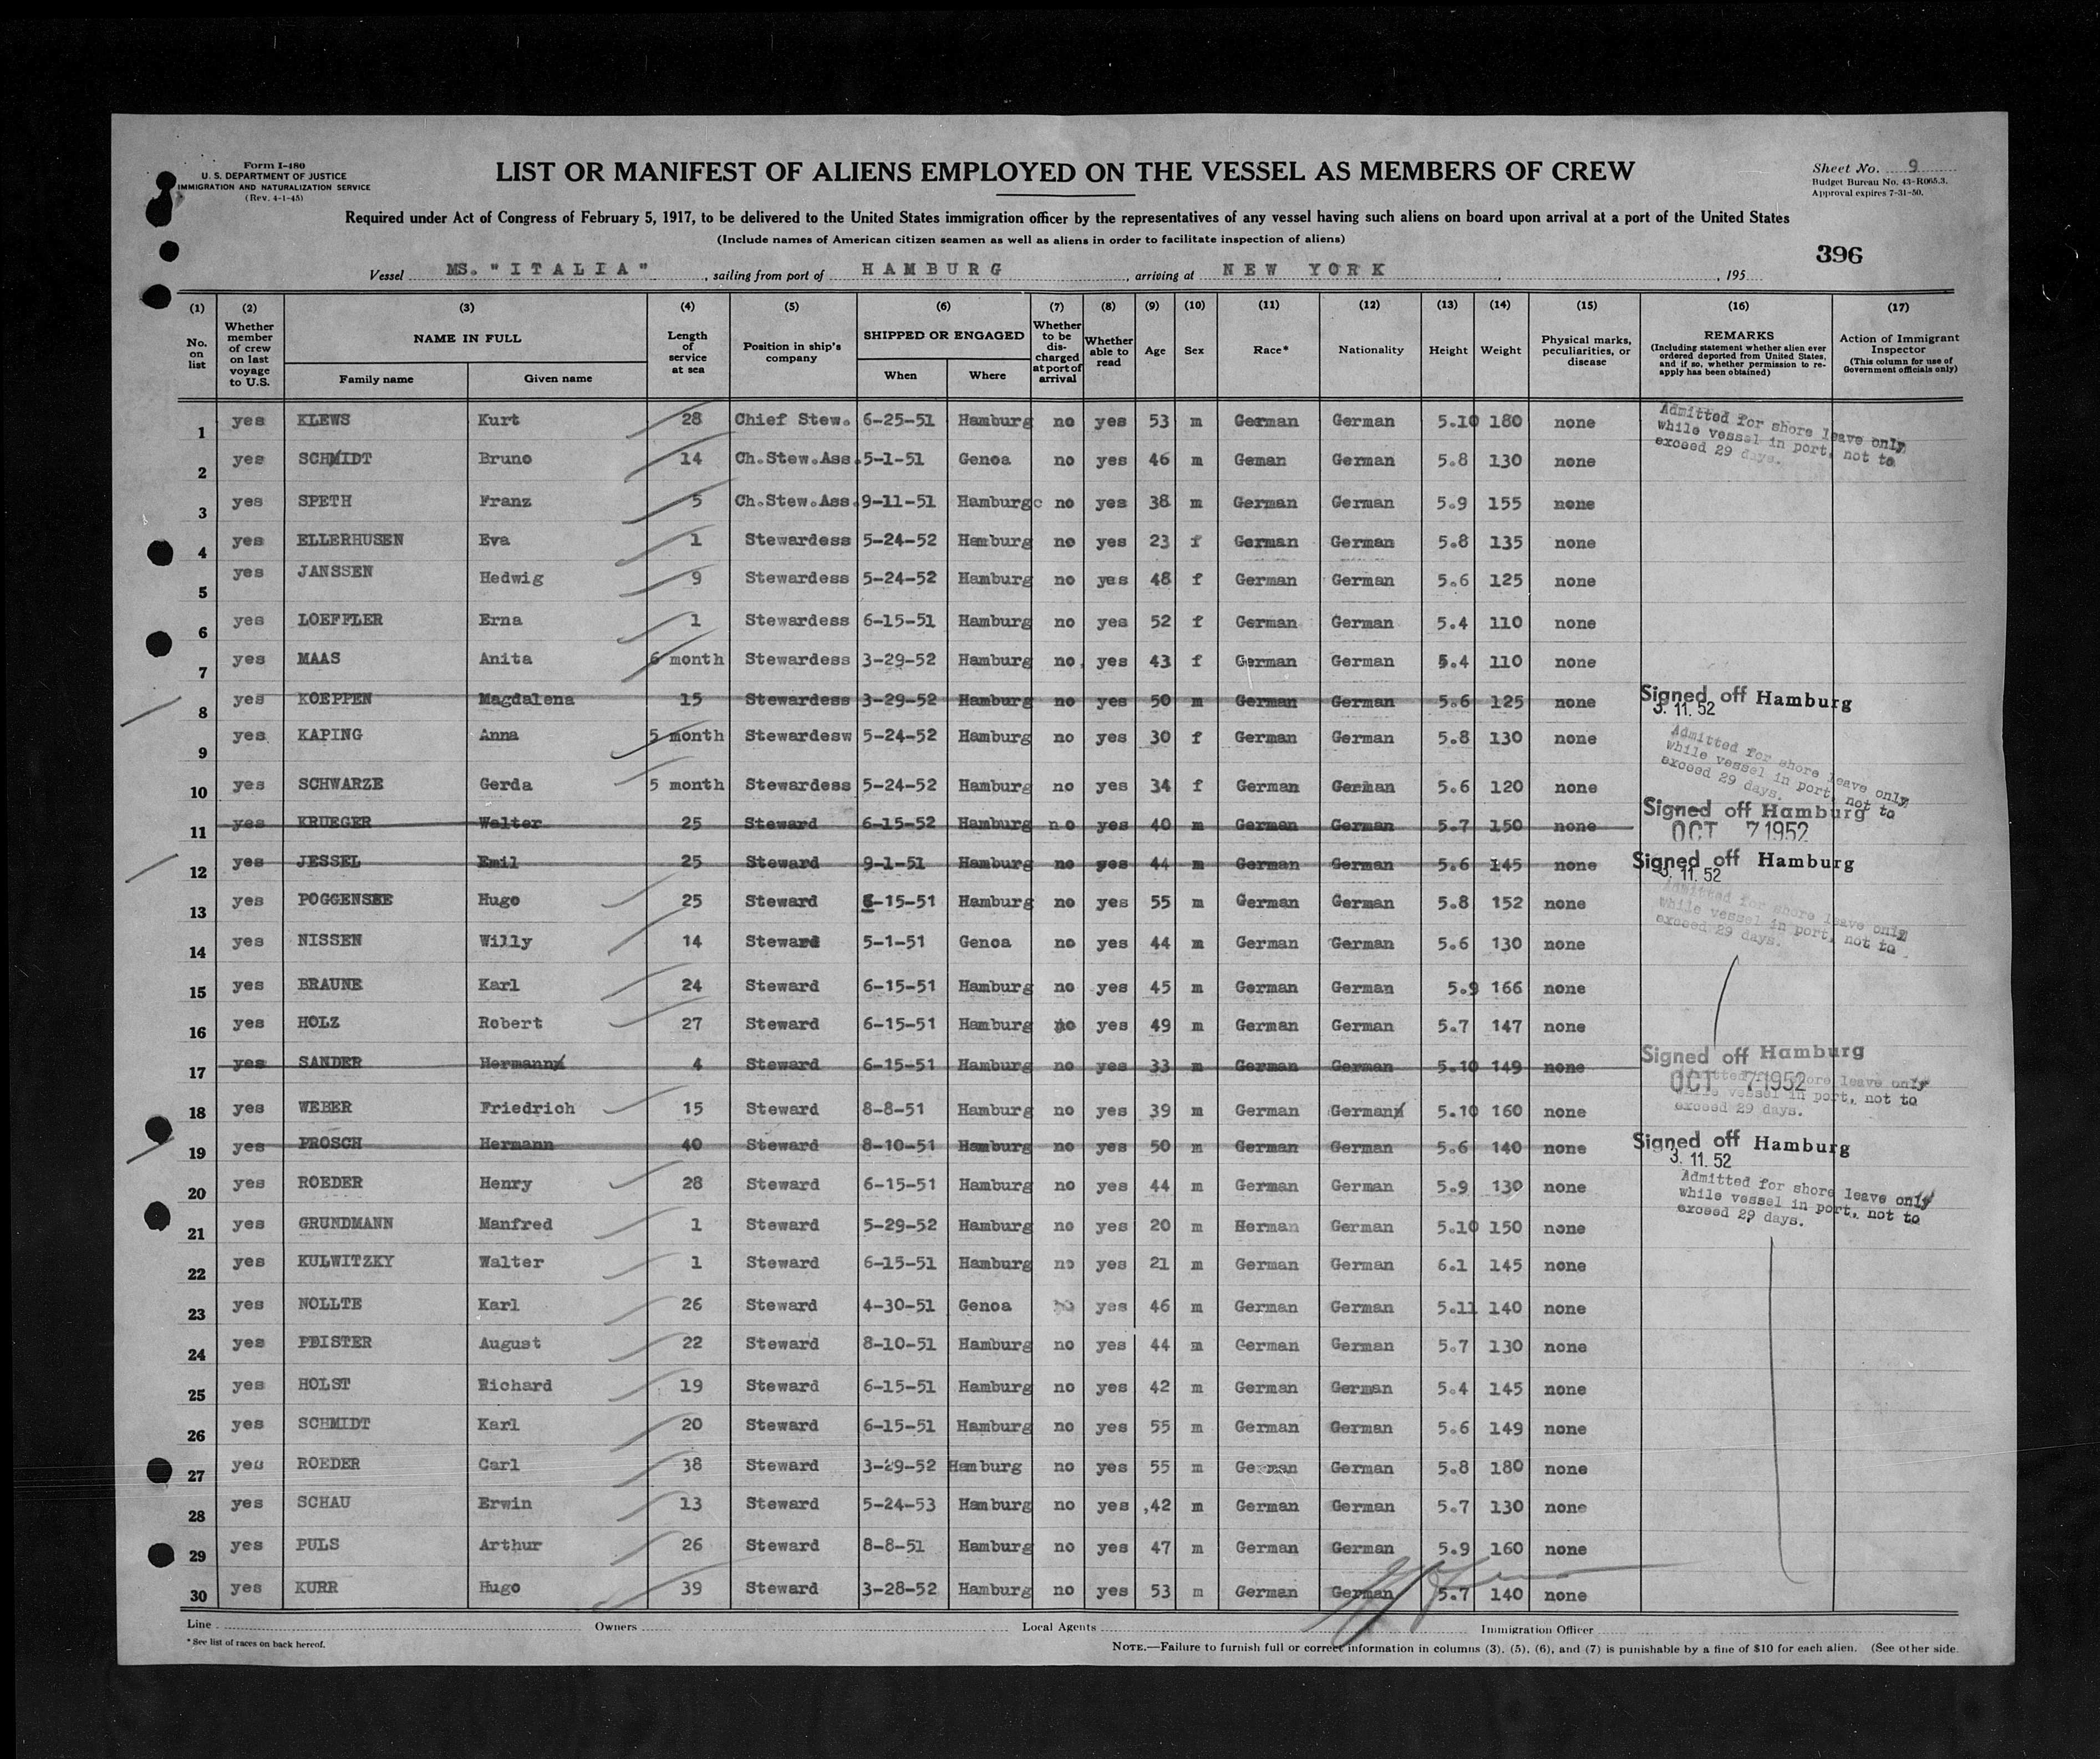 Form I-480
U. S. DEPARTMENT OF JUSTICE
IMMIGRATION AND NATURALIZATION SERVICE
(Rev. 4-1-45)
LIST OR MANIFEST OF ALIENS EMPLOYED ON THE VESSEL AS MEMBERS OF CREW
Sheet No. 9
Budget Bureau No. 43-R065.3.
Approval expires 7-31-50.
Required under Act of Congress of February 5, 1917, to be delivered to the United States immigration officer by the representatives of any vessel having such aliens on board upon arrival at a port of the United States
(Include names of American citizen seamen as well as aliens in order to facilitate inspection of aliens)
396
Vessel MS. "ITALIA", sailing from port of HAMBURG, arriving at NEW YORK, , 195
(1) (2) (3) (4) (5) (6) (7) (8) (9) (10) (11) (12) (13) (14) (15) (16) (17)
No. on list
Whether member of crew on last voyage to U.S.
NAME IN FULL
Family name
Given name
Length of service at sea
Position in ship's company
SHIPPED OR ENGAGED
When
Where
Whether to be discharged at port of arrival
Whether able to read
Age
Sex
Race*
Nationality
Height
Weight
Physical marks, peculiarities, or disease
REMARKS
(Including statement whether alien ever ordered deported from United States, and if so, whether permission to re-apply has been obtained)
Action of Immigrant Inspector
(This column for use of Government officials only)
1 yes KLEWS Kurt 28 Chief Stew. 6-25-51 Hamburg no yes 53 m German German 5.10 180 none
Admitted for shore leave only
while vessel in port, not to
exceed 29 days.
2 yes SCHMIDT Bruno 14 Ch.Stew.Ass. 5-1-51 Genoa no yes 46 m Geman German 5.8 130 none
3 yes SPETH Franz 5 Ch.Stew.Ass. 9-11-51 Hamburgc no yes 38 m German German 5.9 155 none
4 yes ELLERHUSEN Eva 1 Stewardess 5-24-52 Hamburg no yes 23 f German German 5.8 135 none
5 yes JANSSEN Hedwig 9 Stewardess 5-24-52 Hamburg no yes 48 f German German 5.6 125 none
6 yes LOEFFLER Erna 1 Stewardess 6-15-51 Hamburg no yes 52 f German German 5.4 110 none
7 yes MAAS Anita 6 month Stewardess 3-29-52 Hamburg no yes 43 f German German 5.4 110 none
8 yes KOEPPEN Magdalena 15 Stewardess 3-29-52 Hamburg no yes 50 m German German 5.6 125 none Signed off Hamburg
3. 11. 52
9 yes KAPING Anna 5 month Stewardesw 5-24-52 Hamburg no yes 30 f German German 5.8 130 none
Admitted for shore leave only
while vessel in port, not to
exceed 29 days.
10 yes SCHWARZE Gerda 5 month Stewardess 5-24-52 Hamburg no yes 34 f German German 5.6 120 none
11 yes KRUEGER Walter 25 Steward 6-15-52 Hamburg no yes 40 m German German 5.7 150 none Signed off Hamburg
OCT 7 1952
12 yes JESSEL Emil 25 Steward 9-1-51 Hamburg no yes 44 m German German 5.6 145 none Signed off Hamburg
3. 11. 52
13 yes POGGENSEE Hugo 25 Steward 6-15-51 Hamburg no yes 55 m German German 5.8 152 none
Admitted for shore leave only
while vessel in port, not to
exceed 29 days.
14 yes NISSEN Willy 14 Steward 5-1-51 Genoa no yes 44 m German German 5.6 130 none
15 yes BRAUNE Karl 24 Steward 6-15-51 Hamburg no yes 45 m German German 5.9 166 none
16 yes HOLZ Robert 27 Steward 6-15-51 Hamburg no yes 49 m German German 5.7 147 none
17 yes SANDER Hermann 4 Steward 6-15-51 Hamburg no yes 33 m German German 5.10 149 none Signed off Hamburg
OCT 7 1952
Admitted for shore leave only
while vessel in port, not to
exceed 29 days.
18 yes WEBER Friedrich 15 Steward 8-8-51 Hamburg no yes 39 m German German 5.10 160 none
19 yes PROSCH Hermann 40 Steward 8-10-51 Hamburg no yes 50 m German German 5.6 140 none Signed off Hamburg
3. 11. 52
20 yes ROEDER Henry 28 Steward 6-15-51 Hamburg no yes 44 m German German 5.9 130 none
Admitted for shore leave only
while vessel in port, not to
exceed 29 days.
21 yes GRUNDMANN Manfred 1 Steward 5-29-52 Hamburg no yes 20 m Herman German 5.10 150 none
22 yes KULWITZKY Walter 1 Steward 6-15-51 Hamburg no yes 21 m German German 6.1 145 none
23 yes NOLLTE Karl 26 Steward 4-30-51 Genoa no yes 46 m German German 5.11 140 none
24 yes PDISTER August 22 Steward 8-10-51 Hamburg no yes 44 m German German 5.7 130 none
25 yes HOLST Richard 19 Steward 6-15-51 Hamburg no yes 42 m German German 5.4 145 none
26 yes SCHMIDT Karl 20 Steward 6-15-51 Hamburg no yes 55 m German German 5.6 149 none
27 yes ROEDER Carl 38 Steward 3-29-52 Hamburg no yes 55 m German German 5.8 180 none
28 yes SCHAU Erwin 13 Steward 5-24-53 Hamburg no yes 42 m German German 5.7 130 none
29 yes PULS Arthur 26 Steward 8-8-51 Hamburg no yes 47 m German German 5.9 160 none
30 yes KURR Hugo 39 Steward 3-28-52 Hamburg no yes 53 m German German 5.7 140 none
Line Owners Local Agents Immigration Officer
* See list of races on back hereof.
NOTE.—Failure to furnish full or correct information in columns (3), (5), (6), and (7) is punishable by a fine of $10 for each alien. (See other side.